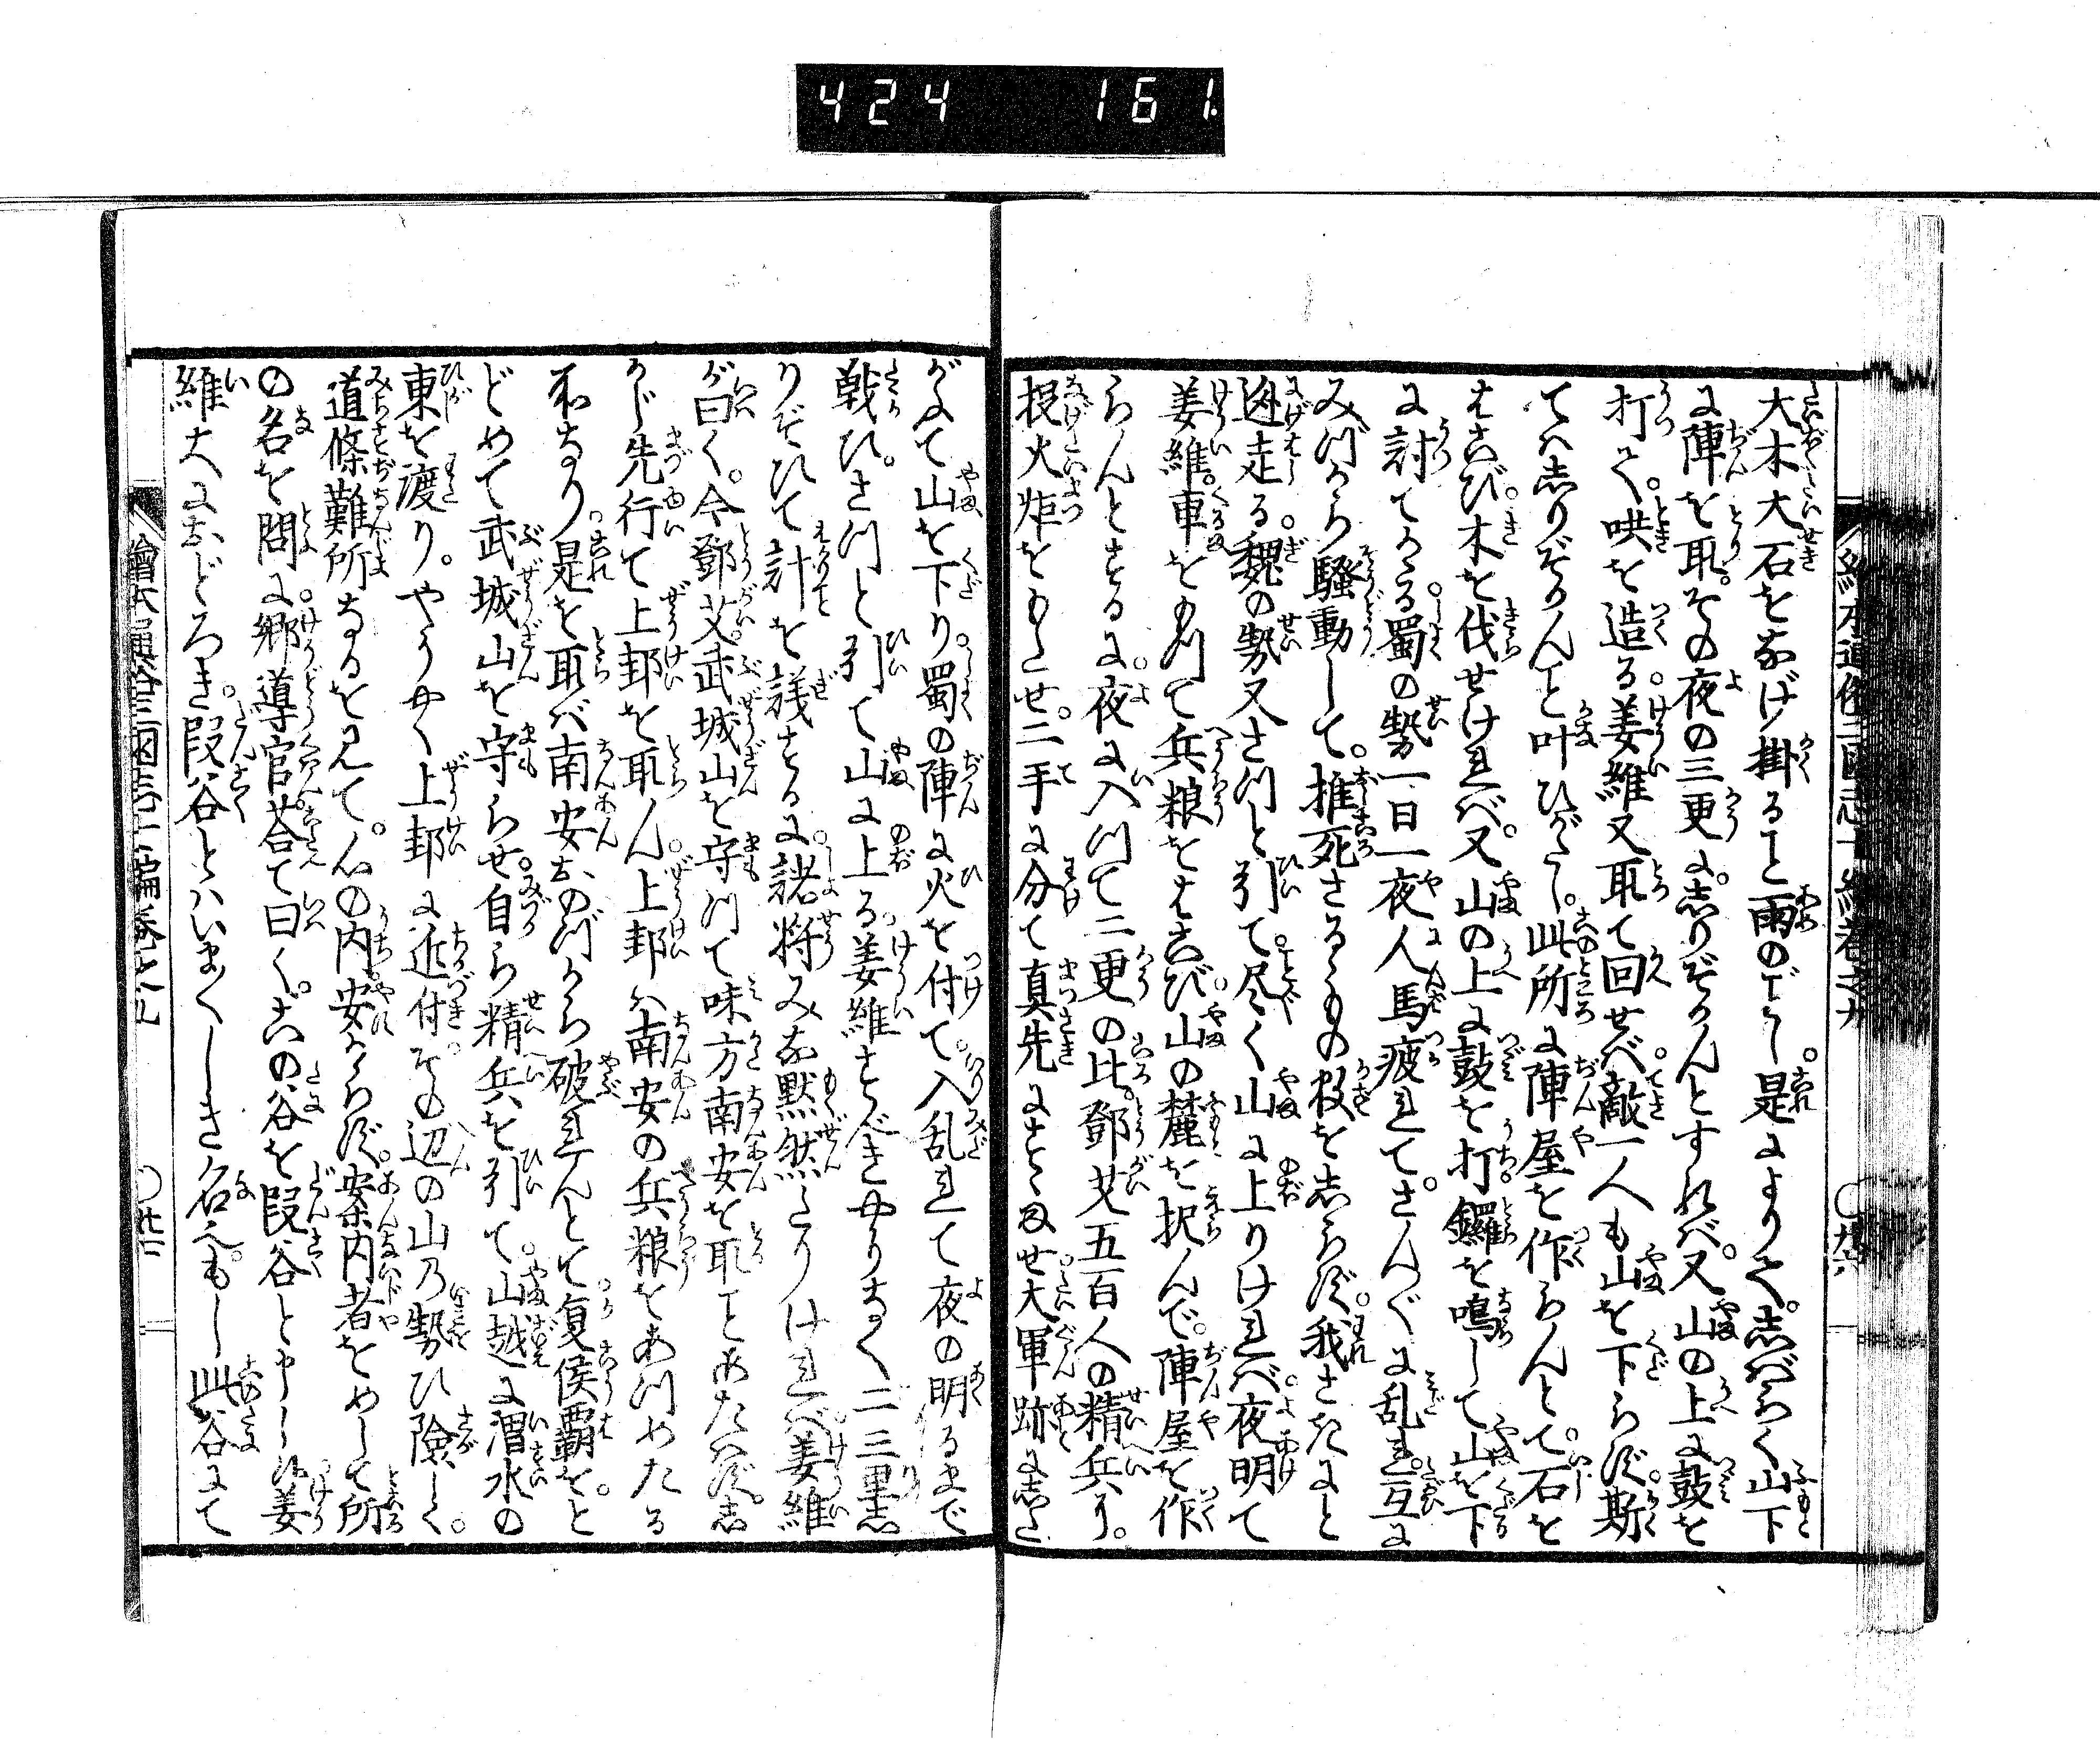 424 161
大木大石をなげ掛ること雨のごとし。是によりて。志ばらく山下
に陣を取。その夜の三更に。志りぞかんとすれば。又山の上に鼓を
打て。哄を造る。姜維又取て回せば。敵一人も山を下らず。斯
てハ志りぞかんこと叶ひがたし。此所に陣屋を作らんとて。石を
はこび。木を伐せけれバ。又山の上に鼓を打。鑼を鳴して山を下
に討てかる。蜀の勢一日一夜人馬疲れて。さんぐに乱れ。互に
みづから騒動して。推死さるゝもの数を志らず。我さきにと
迯走る。魏の勢又さつと引て。尽く山に上りけれバ。夜明て
姜維。車をもつて兵粮をはこび。山の麓を択んで。陣屋を作
らんとするに。夜に入つて二更の比。鄧艾五百人の精兵に。
投火炬をもたせ。二手に分て真先にすゝませ。大軍跡に志た
がふて山を下り。蜀の陣に火を付て。入乱れて夜の明るまで
戦ひ。さつと引て山に上る。姜維すべきやうなく二三里志
りぞひて計を議するに。諸将みな黙然たりけれバ。姜維
が曰く。今鄧艾。武城山を守つて味方南安を取ことあたはず。志
かじ先行て上邽を取ん。上邽ハ南安の兵粮をあつめたる
所なり。是を取バ南安おのづから破れんとて。夏侯覇をと
どめて武城山を守らせ。自ら精兵を引て。山越に渭水の
東を渡り。やうやく上邽に近付。その辺の山の勢ひ険しく。
道條難所なるを見て。心の内安からず。案内者をめして所
の名を問に。郷導官荅て曰く。この谷を段谷と申し候。姜
維大におどろき。段谷とハいまくしき名也。もし此谷にて
繪本通俗三国志七編巻之九